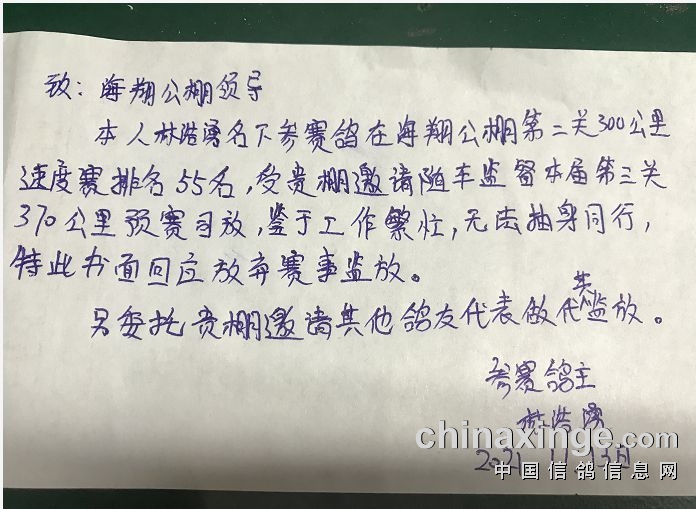 致：海翔公棚领导
本人林浩勇名下参赛鸽在海翔公棚第二关300公里
速度赛排名55名，受贵棚邀请随车监督本届第三关
370公里预赛司放，鉴于工作繁忙，无法抽身同行，
特此书面回应放弃赛事监放。
另委托贵棚邀请其他鸽友代表做代其监放。
参赛鸽主
林浩勇
2021 11 13日
chinaxinge.com
中国信鸽信息网